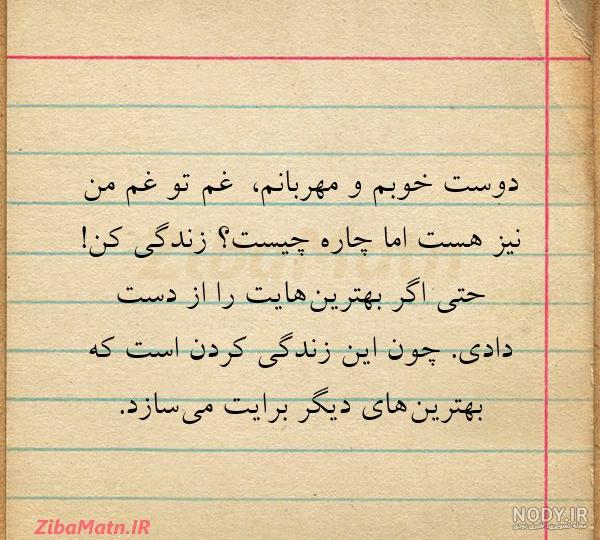 دوست خوبم و مهربانم، غم تو غم من
نیز هست اما چاره چیست؟ زندگی کن!
حتی اگر بهترین‌هایت را از دست
دادی. چون این زندگی کردن است که
بهترین‌های دیگر برایت می‌سازد.
ZibaMatn.IR
NODY.IR
مجله تصویری، خبری نودی